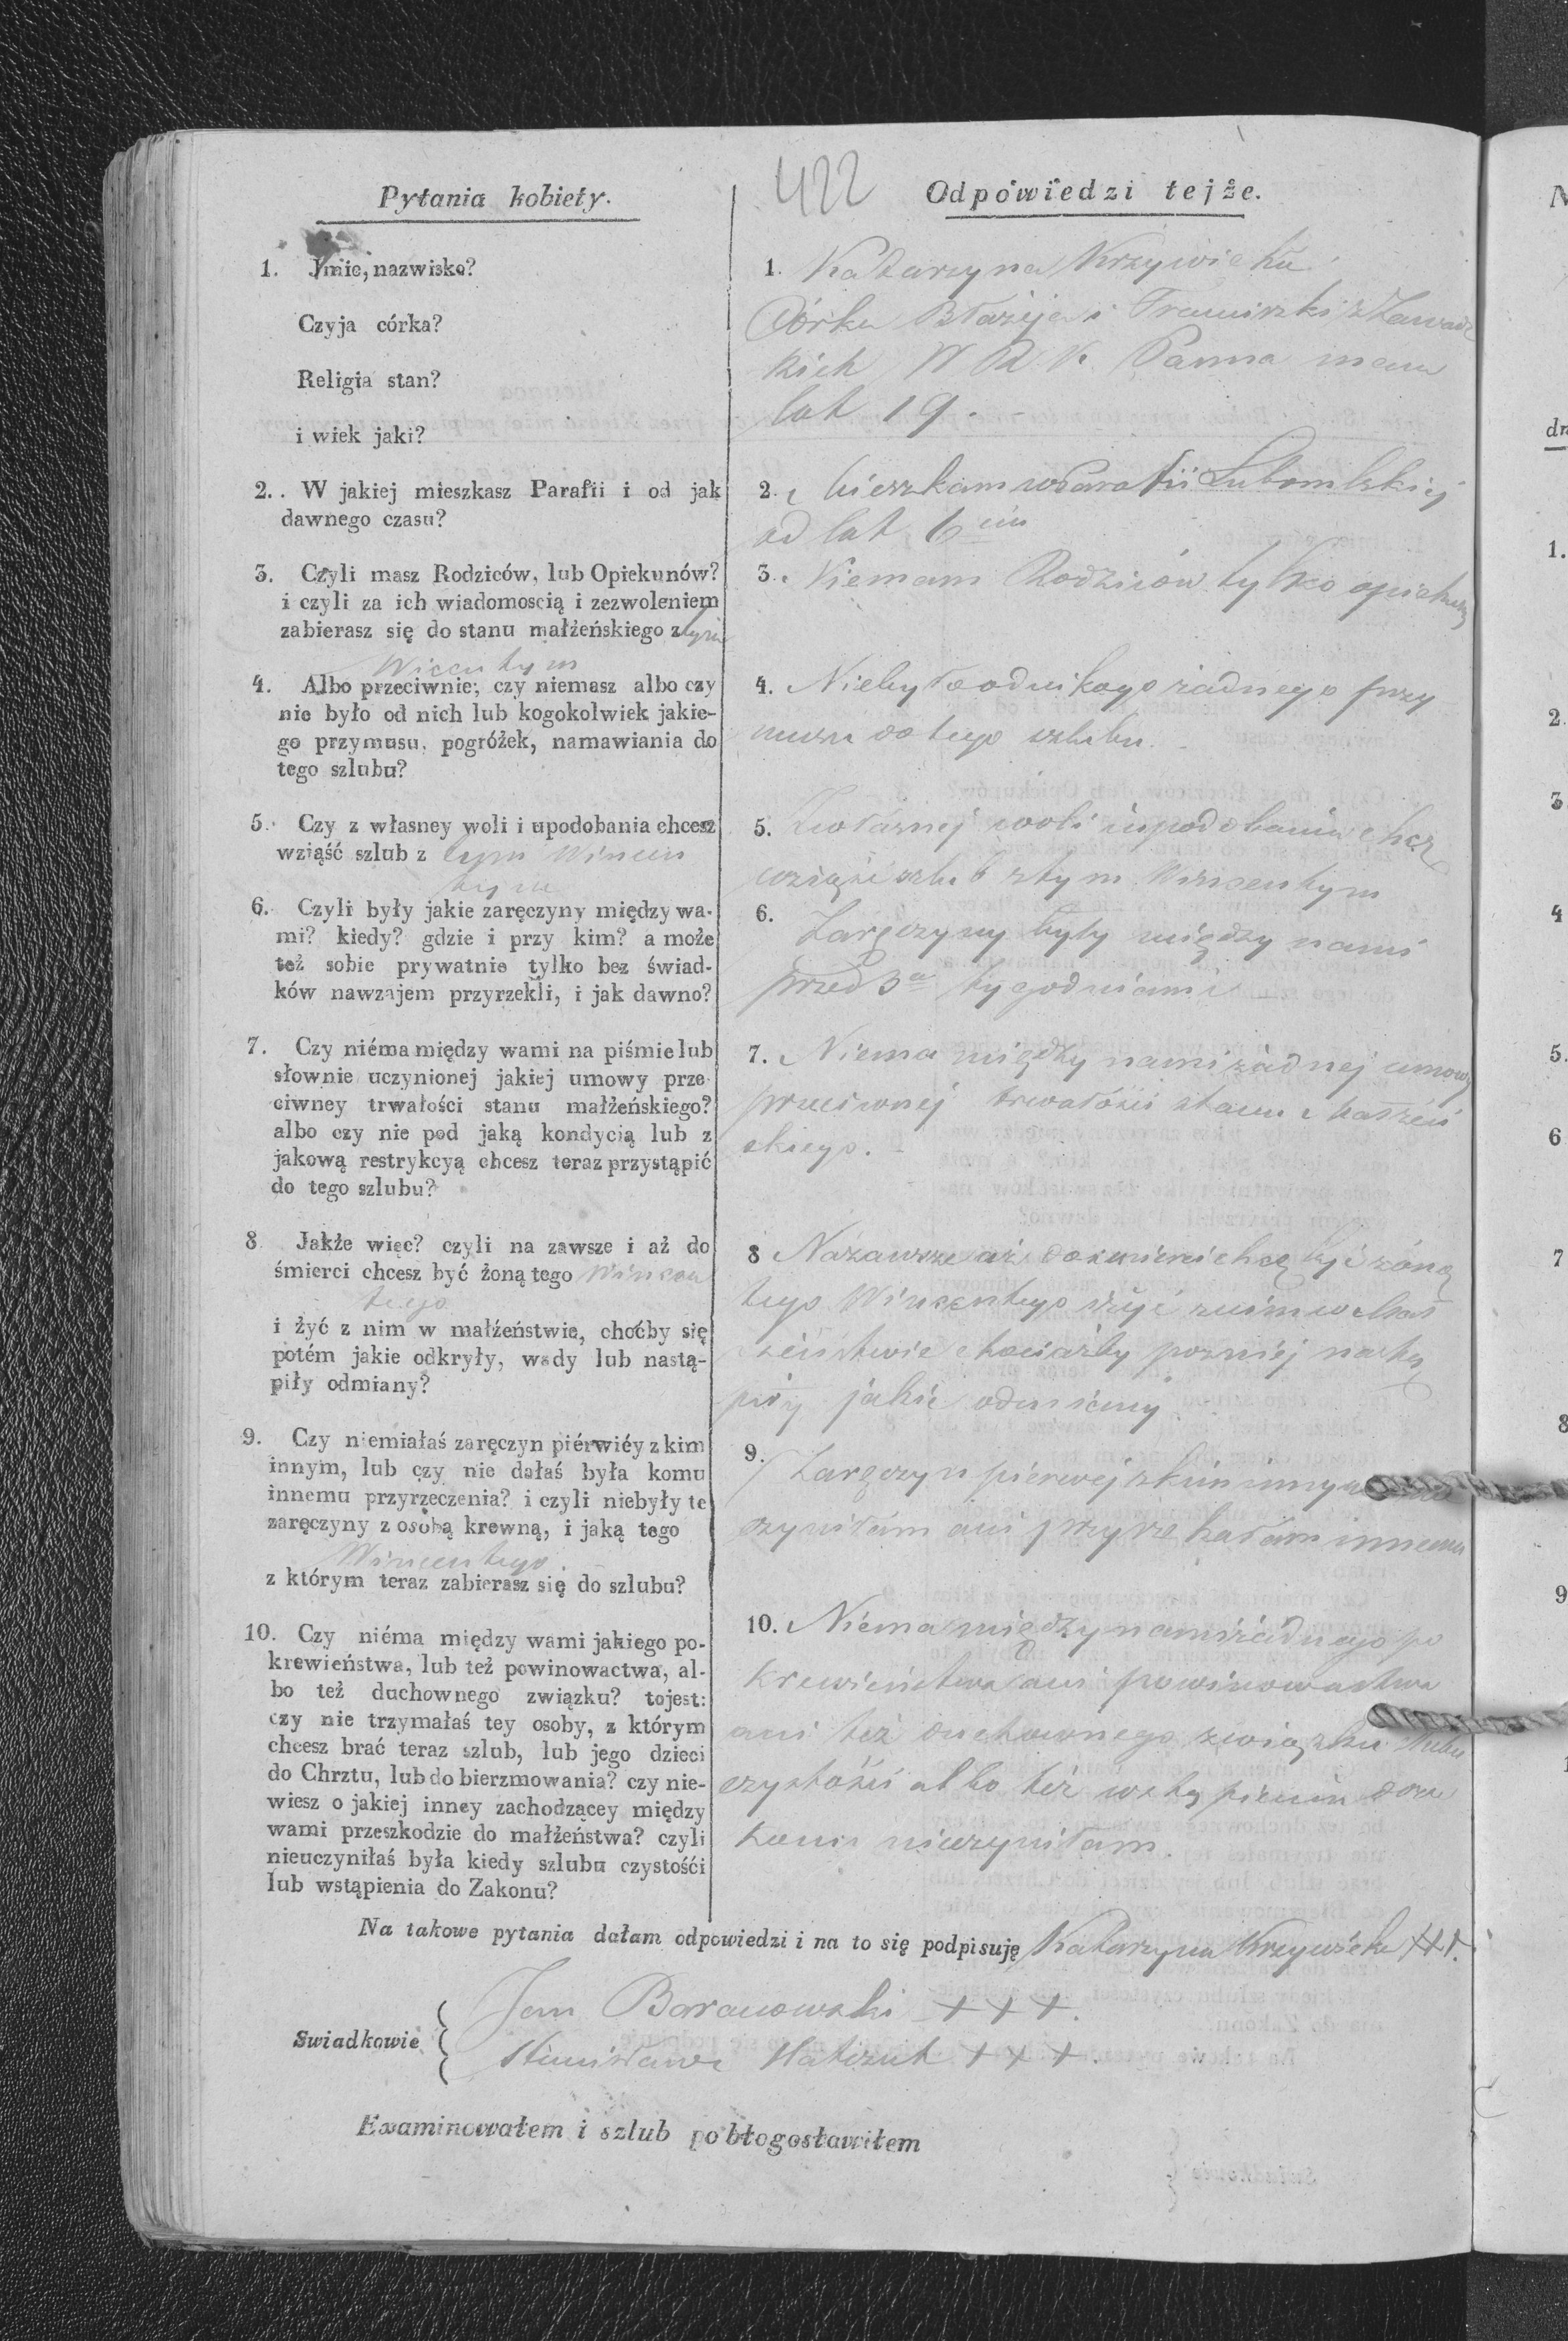 422
Pytania kobiety.
1. Jmie, nazwisko?
Czyja córka?
Religia stan?
i wiek jaki?
2. . W jakiej mieszkasz Parafii i od jak
dawnego czasu?
3. Czyli masz Rodziców, lub Opiekunów?
i czyli za ich wiadomoscią i zezwoleniem
zabierasz się do stanu małżeńskiego z tym
Wiccutym
4. Albo przeciwnie; czy niemasz albo czy
nie było od nich lub kogokolwiek jakie-
go przymusu, pogróżek, namawiania do
tego szlubu?
5. Czy z własney woli i upodobania chcesz
wziąść szlub z tym Wincen
tym
6. Czyli były jakie zaręczyny między wa-
mi? kiedy? gdzie i przy kim? a może
też sobie prywatnie tylko bez świad-
ków nawzajem przyrzekli, i jak dawno?
7. Czy niéma między wami na piśmie lub
słownie uczynionej jakiej umowy prze
ciwney trwałości stanu małżeńskiego?
albo czy nie pod jaką kondycią lub z
jakową restrykcyą chcesz teraz przystąpić
do tego szlubu?
8 Jakże więc? czyli na zawsze i aż do
śmierci chcesz być żoną tego Wincen
tego
i żyć z nim w małżeństwie, choćby się
potém jakie odkryły, wady lub nastą-
piły odmiany?
9. Czy niemiałaś zaręczyn piérwiéy z kim
innym, lub czy nie dałaś była komu
innemu przyrzeczenia? i czyli niebyły te
zaręczyny z osobą krewną, i jaką tego
Wincentego
z którym teraz zabierasz się do szlubu?
10. Czy niéma między wami jakiego po-
krewieństwa, lub też powinowactwa, al-
bo też duchownego związku? tojest:
czy nie trzymałaś tey osoby, z którym
chcesz brać teraz szlub, lub jego dzieci
do Chrztu, lub do bierzmowania? czy nie-
wiesz o jakiej inney zachodzącey między
wami przeszkodzie do małżeństwa? czyli
nieuczyniłaś była kiedy szlubu czystośći
lub wstąpienia do Zakonu?
Odpówiedzi tejże.
1. Katarzyna Krzywicka
Córka Błażeja i Franciszki z Zawadz
kich W R K Panna mam
lat 19.
2. Mieszkam w Parafii Lubomlskiej
od lat 6ciu
3. Niemam Rodziców tylko opiekuny
4. Niebyło od nikogo żadnego przy
musu do tego szlubu.
5. Zwłasnej woli i upodobania chcę
wziąść szlub z tym Wincentym
6. Zaręczyny były między nami
przed 3a tygodniami
7. Niema między nami żadnej umowy
przeciwnej trwałości stanu Małżeń
skiego.
8 Nazawsze aż do śmierci chcę być żoną
tego Wincentego i żyć z nim w Mał
żeństwie chociażby pozniéj nastą
piły jakie odmiany
9. Zaręczyn pierwej z kim innym
czyniłam ani przyrzekałam innemu
10. Niema między nami żadnego po
krewieństwa ani powinowactwa
ani też duchownego związku szlubu
czystości albo też wstąpienia do za
konu nieczyniłam.
Na takowe pytania dałam odpowiedzi i na to się podpisuję Katarzyna Krzywicka XXX.
Swiadkowie Jan Baranowski +++.
Stanisław Hatczuk +++.
Examinowałem i szlub pobłogosławiłem